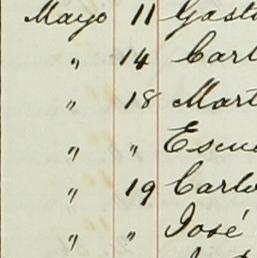 Mayo 11 Gast
" 14 Carl
" 18 Mart
" " Escu
" 19 Carlo
" " José